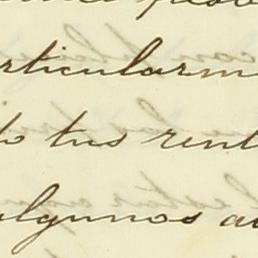 rticularm
to tus rent
algunos a